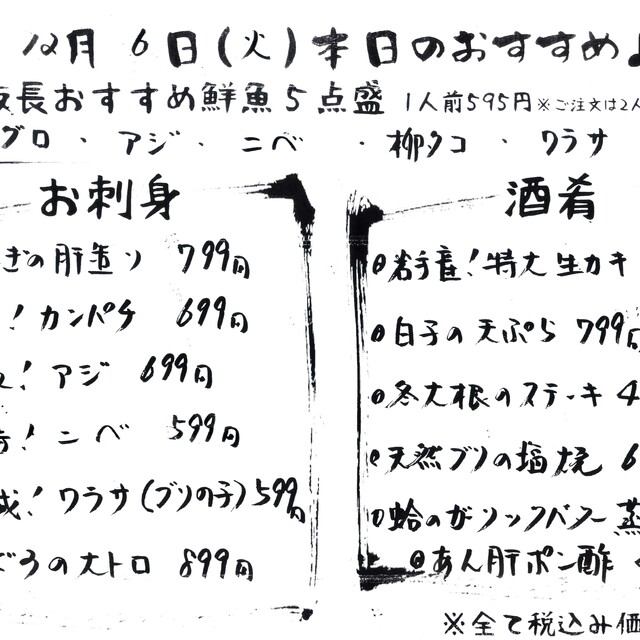 12月6日(火)本日のおすすめ♪
長おすすめ鮮魚5点盛 1人前595円※ご注文は2人
グロ・アジ・ニベ・柳タコ・ワラサ
お刺身
ぎの肝造り 799円
！カンパチ 699円
！アジ 699円
！ニベ 599円
！ワラサ(ブリの子)599円
ぐろの大トロ 899円
酒肴
岩手産！特大生カキ
白子の天ぷら 799円
冬大根のステーキ 4
天然ブリの塩焼 6
蛤のガーリックバター蒸
あん肝ポン酢
※全て税込み価